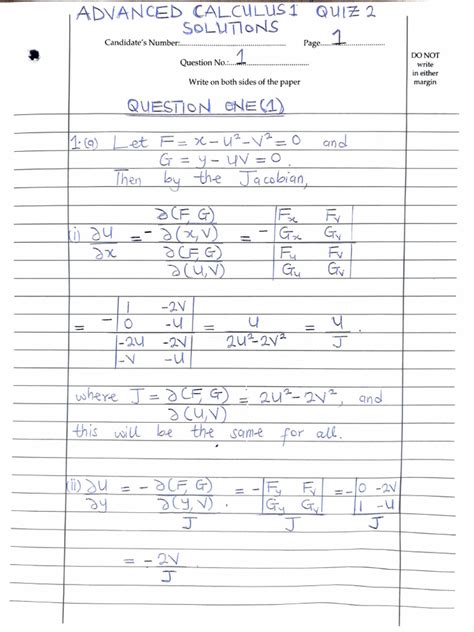 ADVANCED CALCULUS 1 QUIZ 2
SOLUTIONS
Candidate's Number:.................... Page....1....
Question No.:....1....
DO NOT
write
in either
margin
Write on both sides of the paper
QUESTION ONE(1)
1.(a) Let F = x - u² - v² = 0 and
G = y - uv = 0.
Then by the Jacobian,
(i) ∂u/∂x = - (∂(F, G)/∂(x, v)) / (∂(F, G)/∂(u, v)) = - |Fx Fv; Gx Gv| / |Fu Fv; Gu Gv|
= - |1 -2v; 0 -u| / |-2u -2v; -v -u| = u / (2u² - 2v²) = u / J
where J = ∂(F, G)/∂(u, v) = 2u² - 2v², and
this will be the same for all.
(ii) ∂u/∂y = - (∂(F, G)/∂(y, v)) / J = - |Fy Fv; Gy Gv| / J = - |0 -2v; 1 -u| / J
= - 2v / J